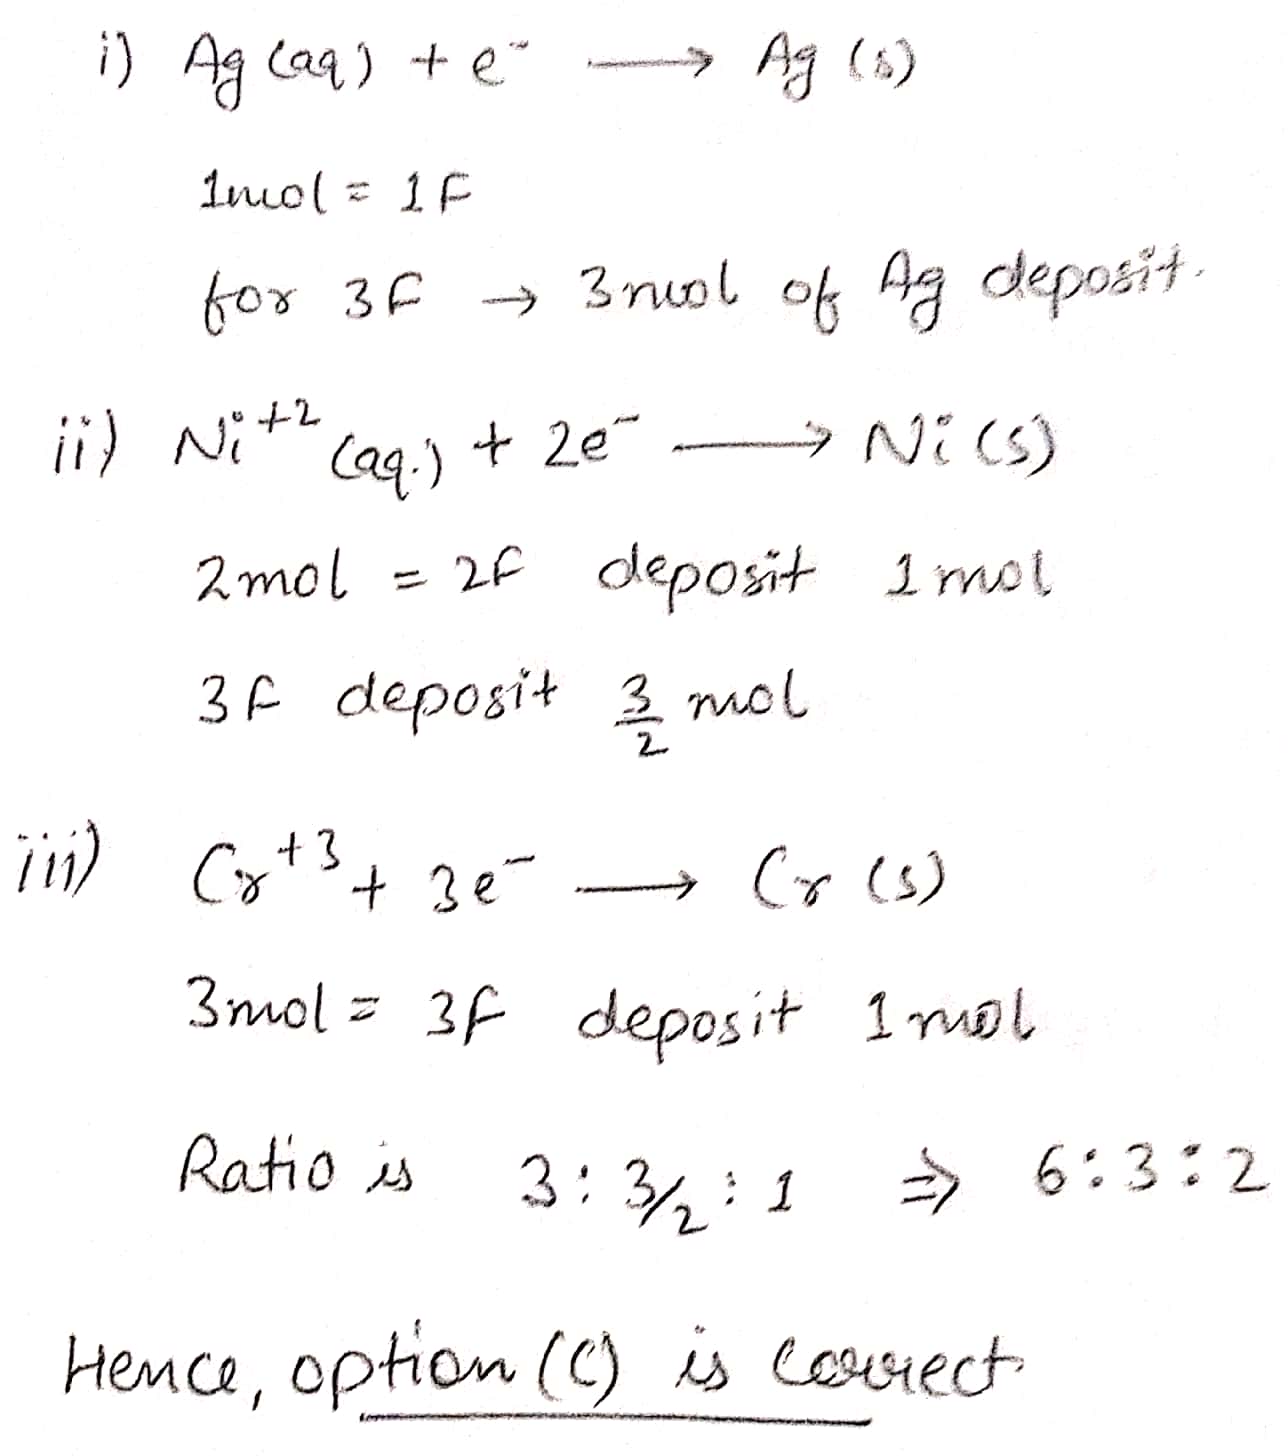 i) Ag (aq) + e⁻ → Ag (s)
1mol = 1F
for 3F → 3mol of Ag deposit.
ii) Ni⁺² (aq.) + 2e⁻ → Ni (s)
2mol = 2F deposit 1 mol
3F deposit 3/2 mol
iii) Cr⁺³ + 3e⁻ → Cr (s)
3mol = 3F deposit 1 mol
Ratio is 3 : 3/2 : 1 ⇒ 6 : 3 : 2
Hence, option (C) is correct